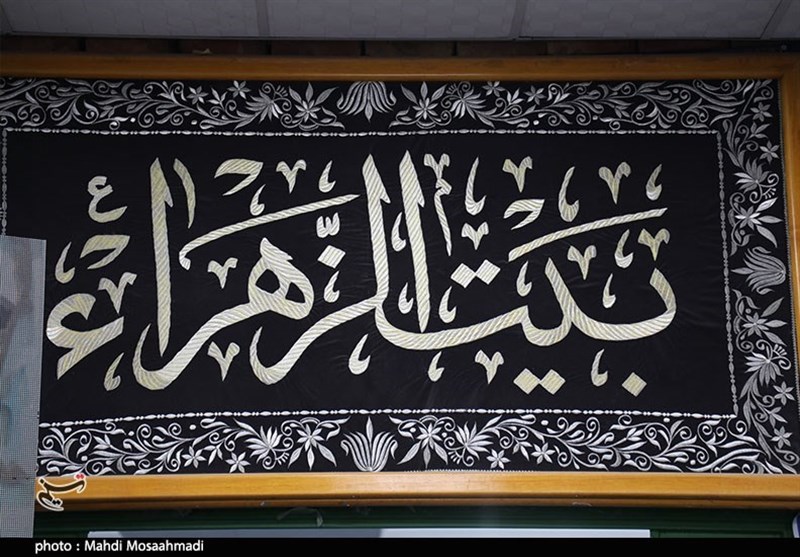 بيت الزهراء
photo : Mahdi Mosaahmadi